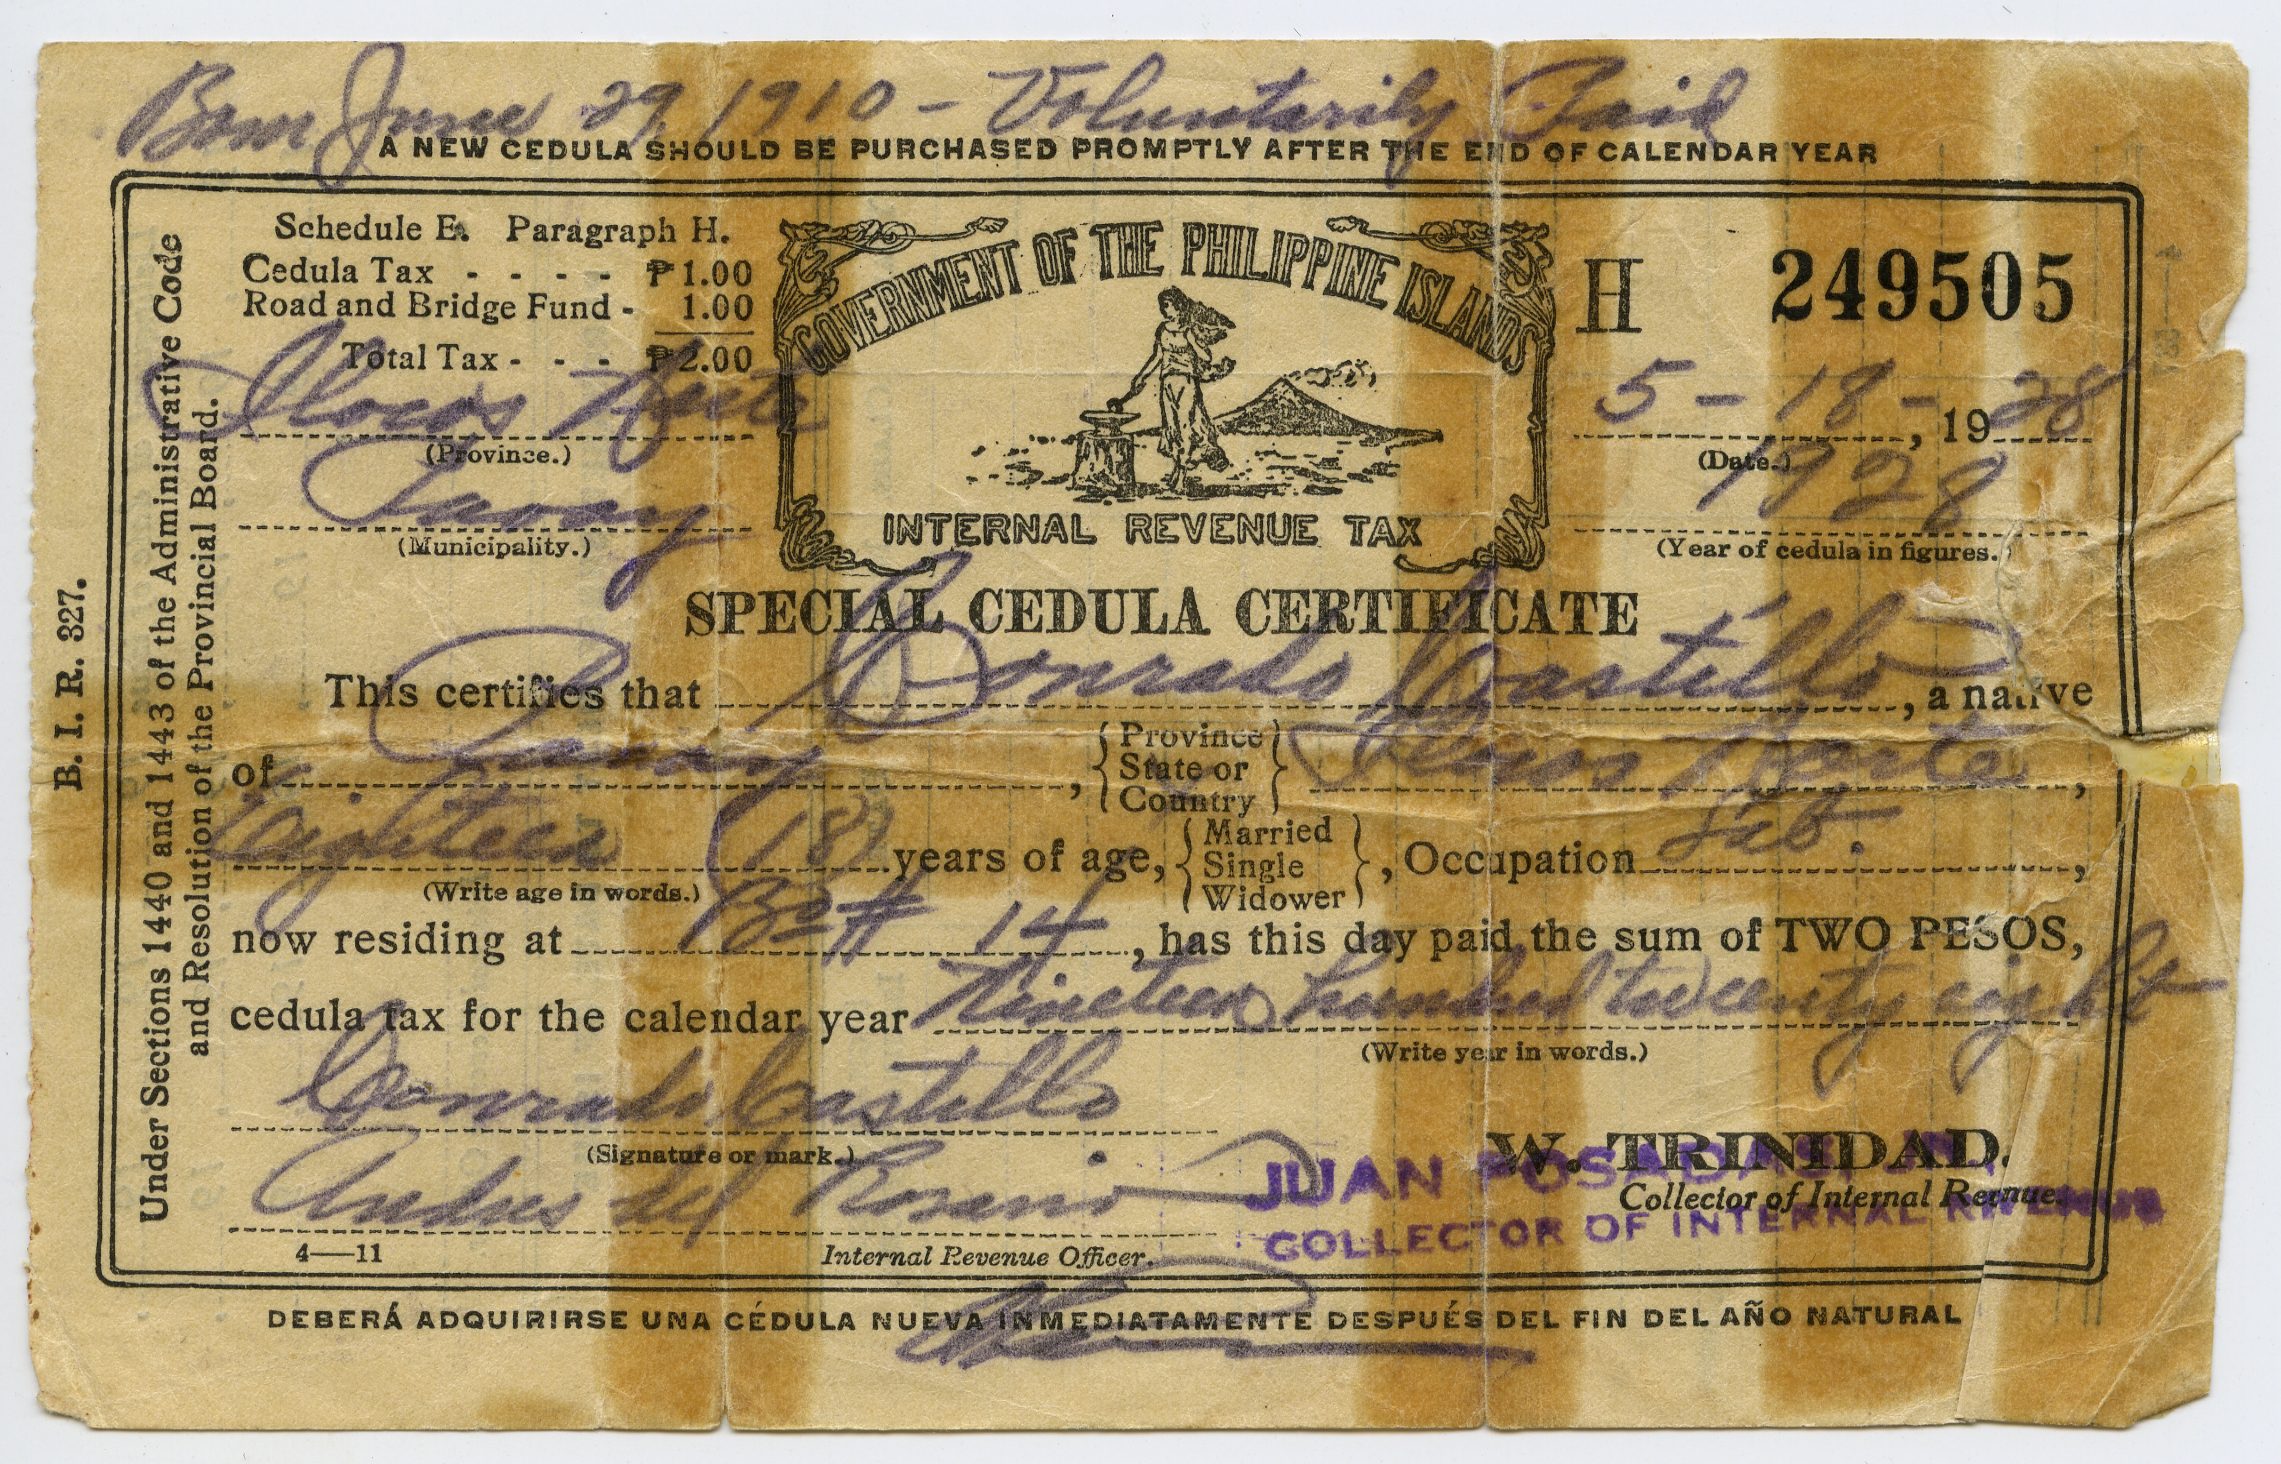 Born June 29, 1910 - Voluntarily Paid
A NEW CEDULA SHOULD BE PURCHASED PROMPTLY AFTER THE END OF CALENDAR YEAR
B. I. R. 327.
Under Sections 1440 and 1443 of the Administrative Code
and Resolution of the Provincial Board.
Schedule E. Paragraph H.
Cedula Tax - - - - ₱1.00
Road and Bridge Fund - 1.00
Total Tax - - - ₱2.00
Ilocos Norte
(Province.)
Paoay
(Municipality.)
GOVERNMENT OF THE PHILIPPINE ISLANDS
INTERNAL REVENUE TAX
H 249505
5 - 18 - , 1928
(Date.)
1928
(Year of cedula in figures.)
SPECIAL CEDULA CERTIFICATE
This certifies that Conrado Castillo, a native
of Paoay, { Province State or Country } Ilocos Norte,
Eighteen (18) years of age, { Married Single Widower }, Occupation Lab.,
(Write age in words.)
now residing at Bo # 14, has this day paid the sum of TWO PESOS,
cedula tax for the calendar year Nineteen hundred twenty eight
(Write year in words.)
Conrado Castillo
(Signature or mark.)
Andres del Rosario
4—11 Internal Revenue Officer.
W. TRINIDAD.
Collector of Internal Revenue.
JUAN POSADAS, JR.
COLLECTOR OF INTERNAL REVENUE
DEBERÁ ADQUIRIRSE UNA CÉDULA NUEVA INMEDIATAMENTE DESPUÉS DEL FIN DEL AÑO NATURAL